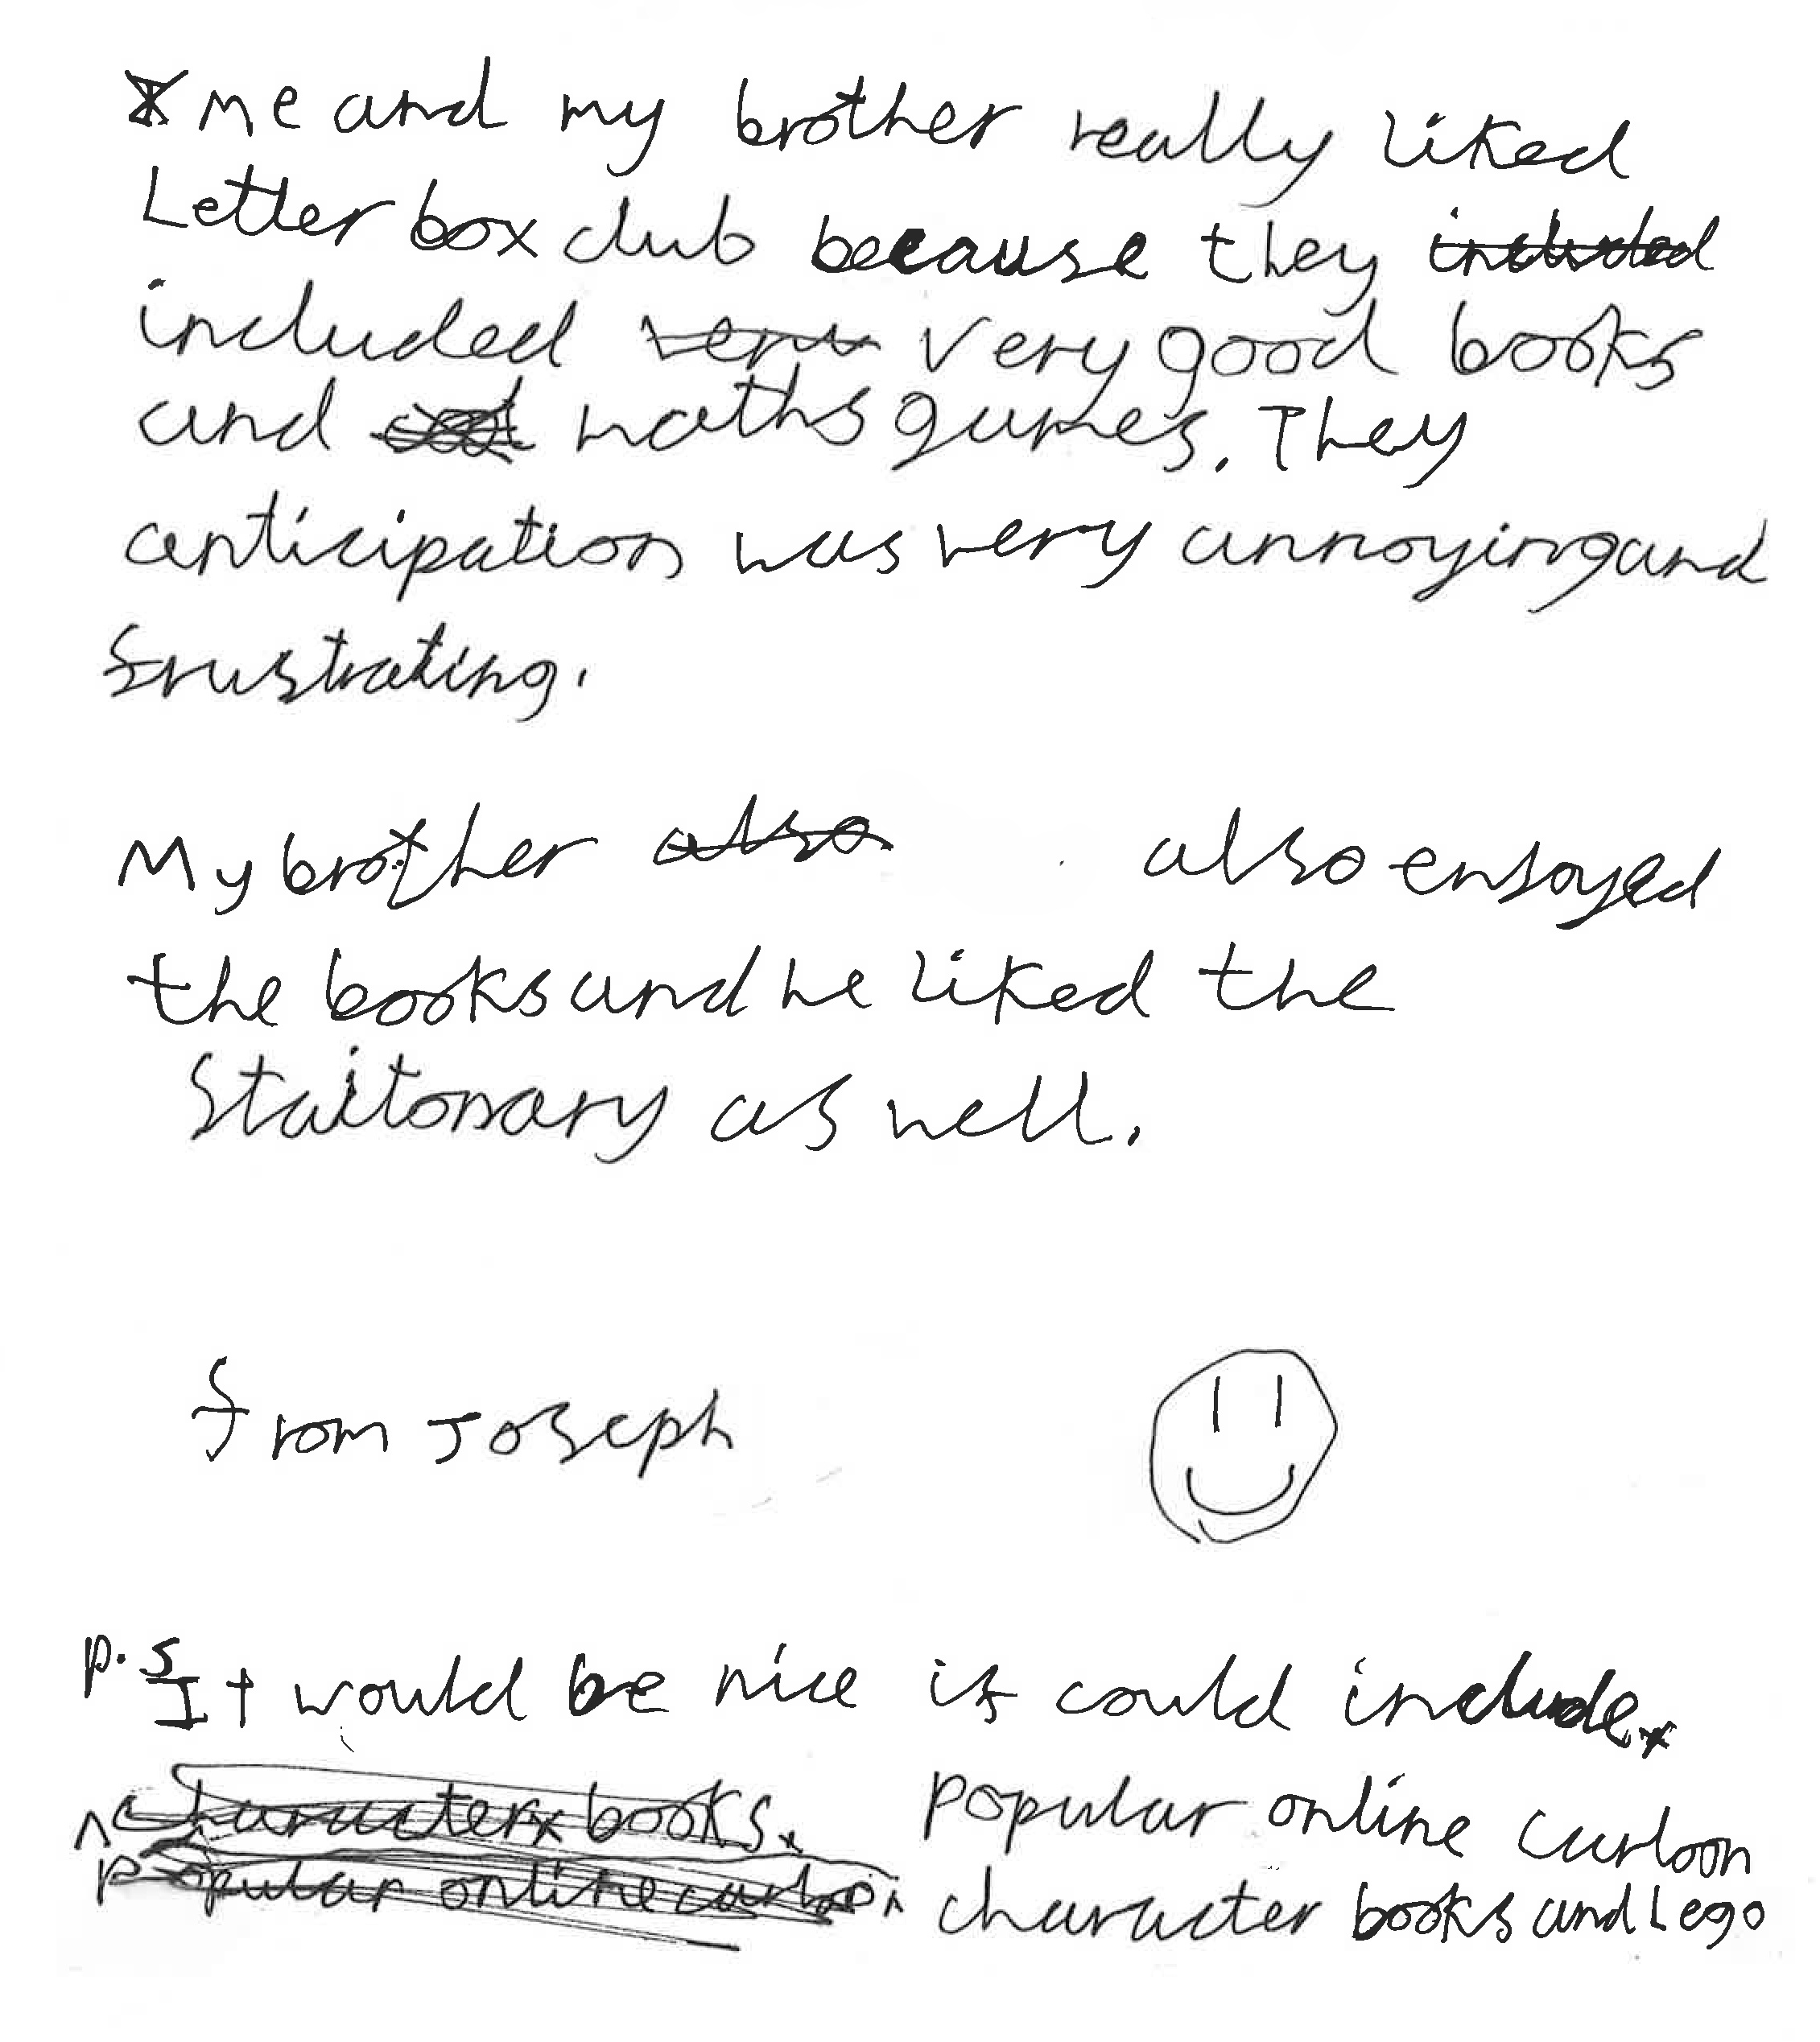 me and my brother really liked
Letter box club because they included
included very very good books
and maths games. They
anticipation was very annoying and
frustrating.
My brother also also enjoyed
the books and he liked the
Staitonary as well.
from Joseph
p.s It would be nice if could include
character books. popular online cartoon
popular online cartoon character books and Lego